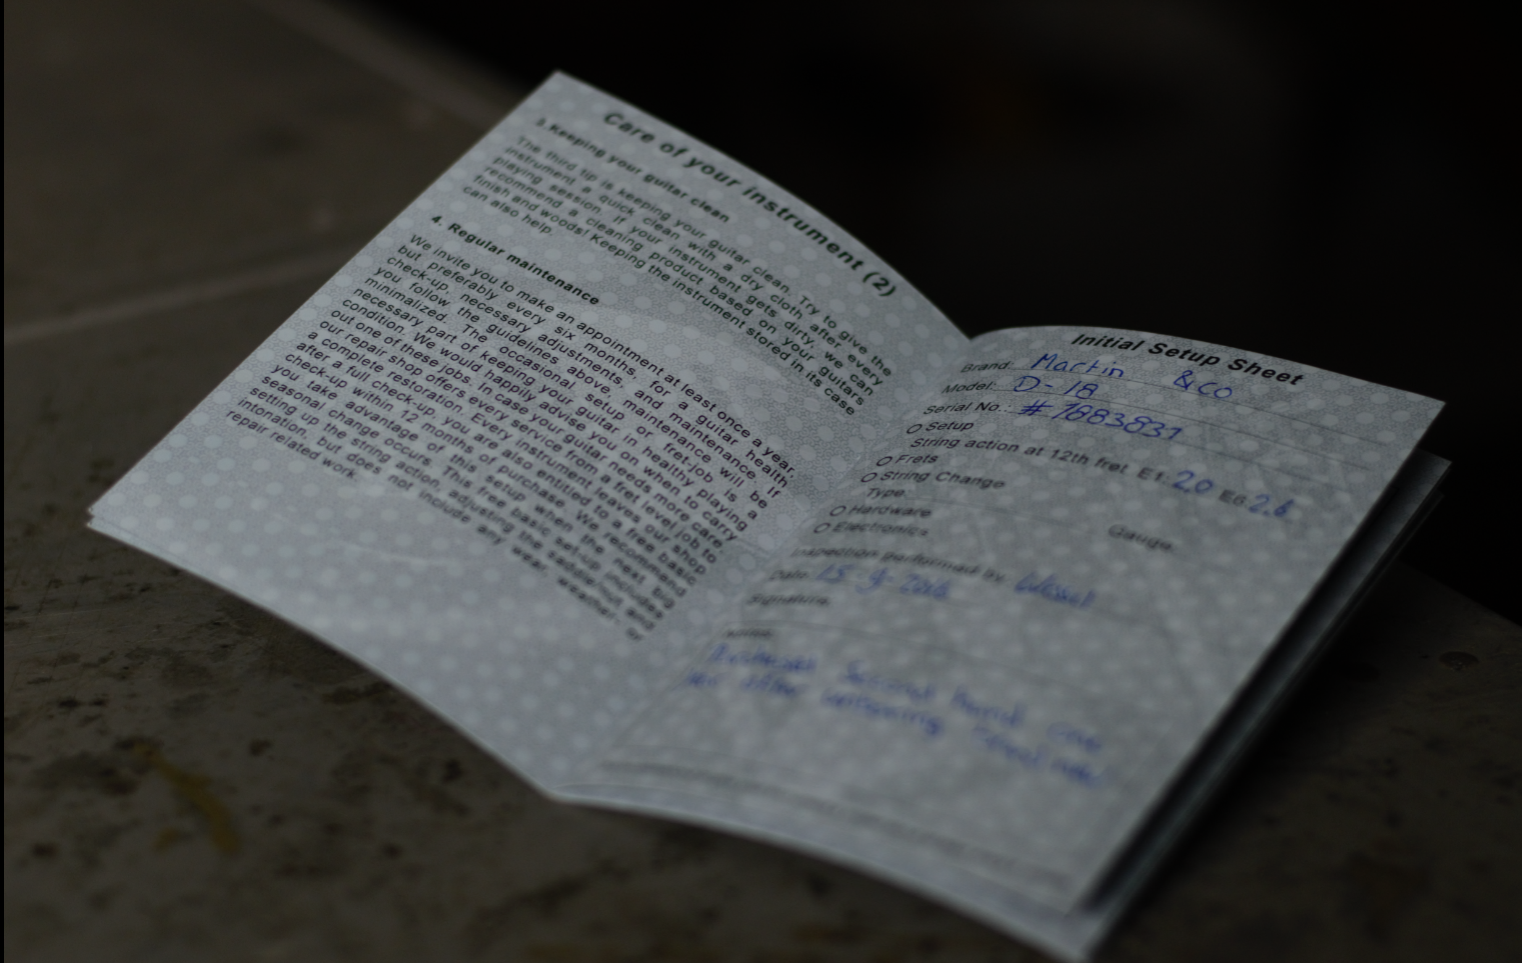 Care of your instrument (2)
3. Keeping your guitar clean
The third tip is keeping your guitar clean. Try to give the
instrument a quick clean with a dry cloth after every
playing session. If your instrument gets dirty, we can
recommend a cleaning product based on your guitars
finish and woods! Keeping the instrument stored in its case
can also help.
4. Regular maintenance
We invite you to make an appointment at least once a year,
but preferably every six months, for a guitar health
check-up, necessary adjustments, and maintenance. If
you follow the guidelines above, maintenance will be
minimalized. The occasional setup or fret-job is a
necessary part of keeping your guitar in healthy playing
condition. We would happily advise you on when to carry
out one of these jobs. In case your guitar needs more care,
our repair shop offers every service from a fret level job to
a complete restoration. Every instrument leaves our shop
after a full check-up, you are also entitled to a free basic
check-up within 12 months of purchase. We recommend
you take advantage of this setup when the next big
seasonal change occurs. This free basic set-up includes
setting up the string action, adjusting the saddle/nut and
intonation, but does not include any wear, weather, or
repair related work.
Initial Setup Sheet
Brand: Martin & CO
Model: D-18
Serial No.: #1883837
Setup
String action at 12th fret E1: 2.0 E6: 2.6
Frets
String Change
Type: Gauge:
Hardware
Electronics
Inspection performed by:
Date: 15-9-
Signature:
Second hand
after